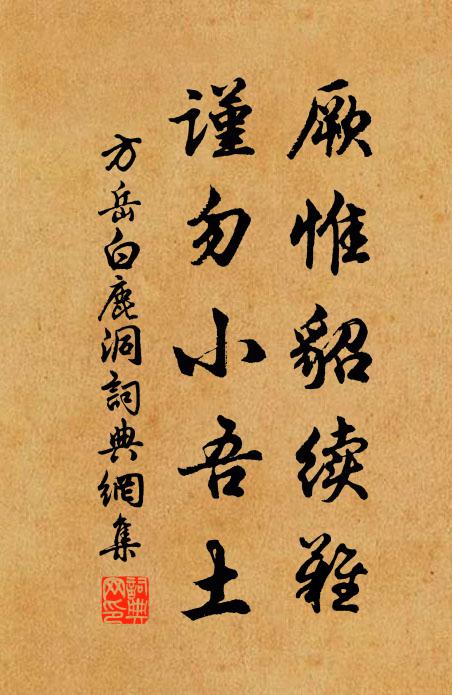 厥惟貂续難
謹勿小吾土
方岳白鹿洞詞典網集
詞典
网印